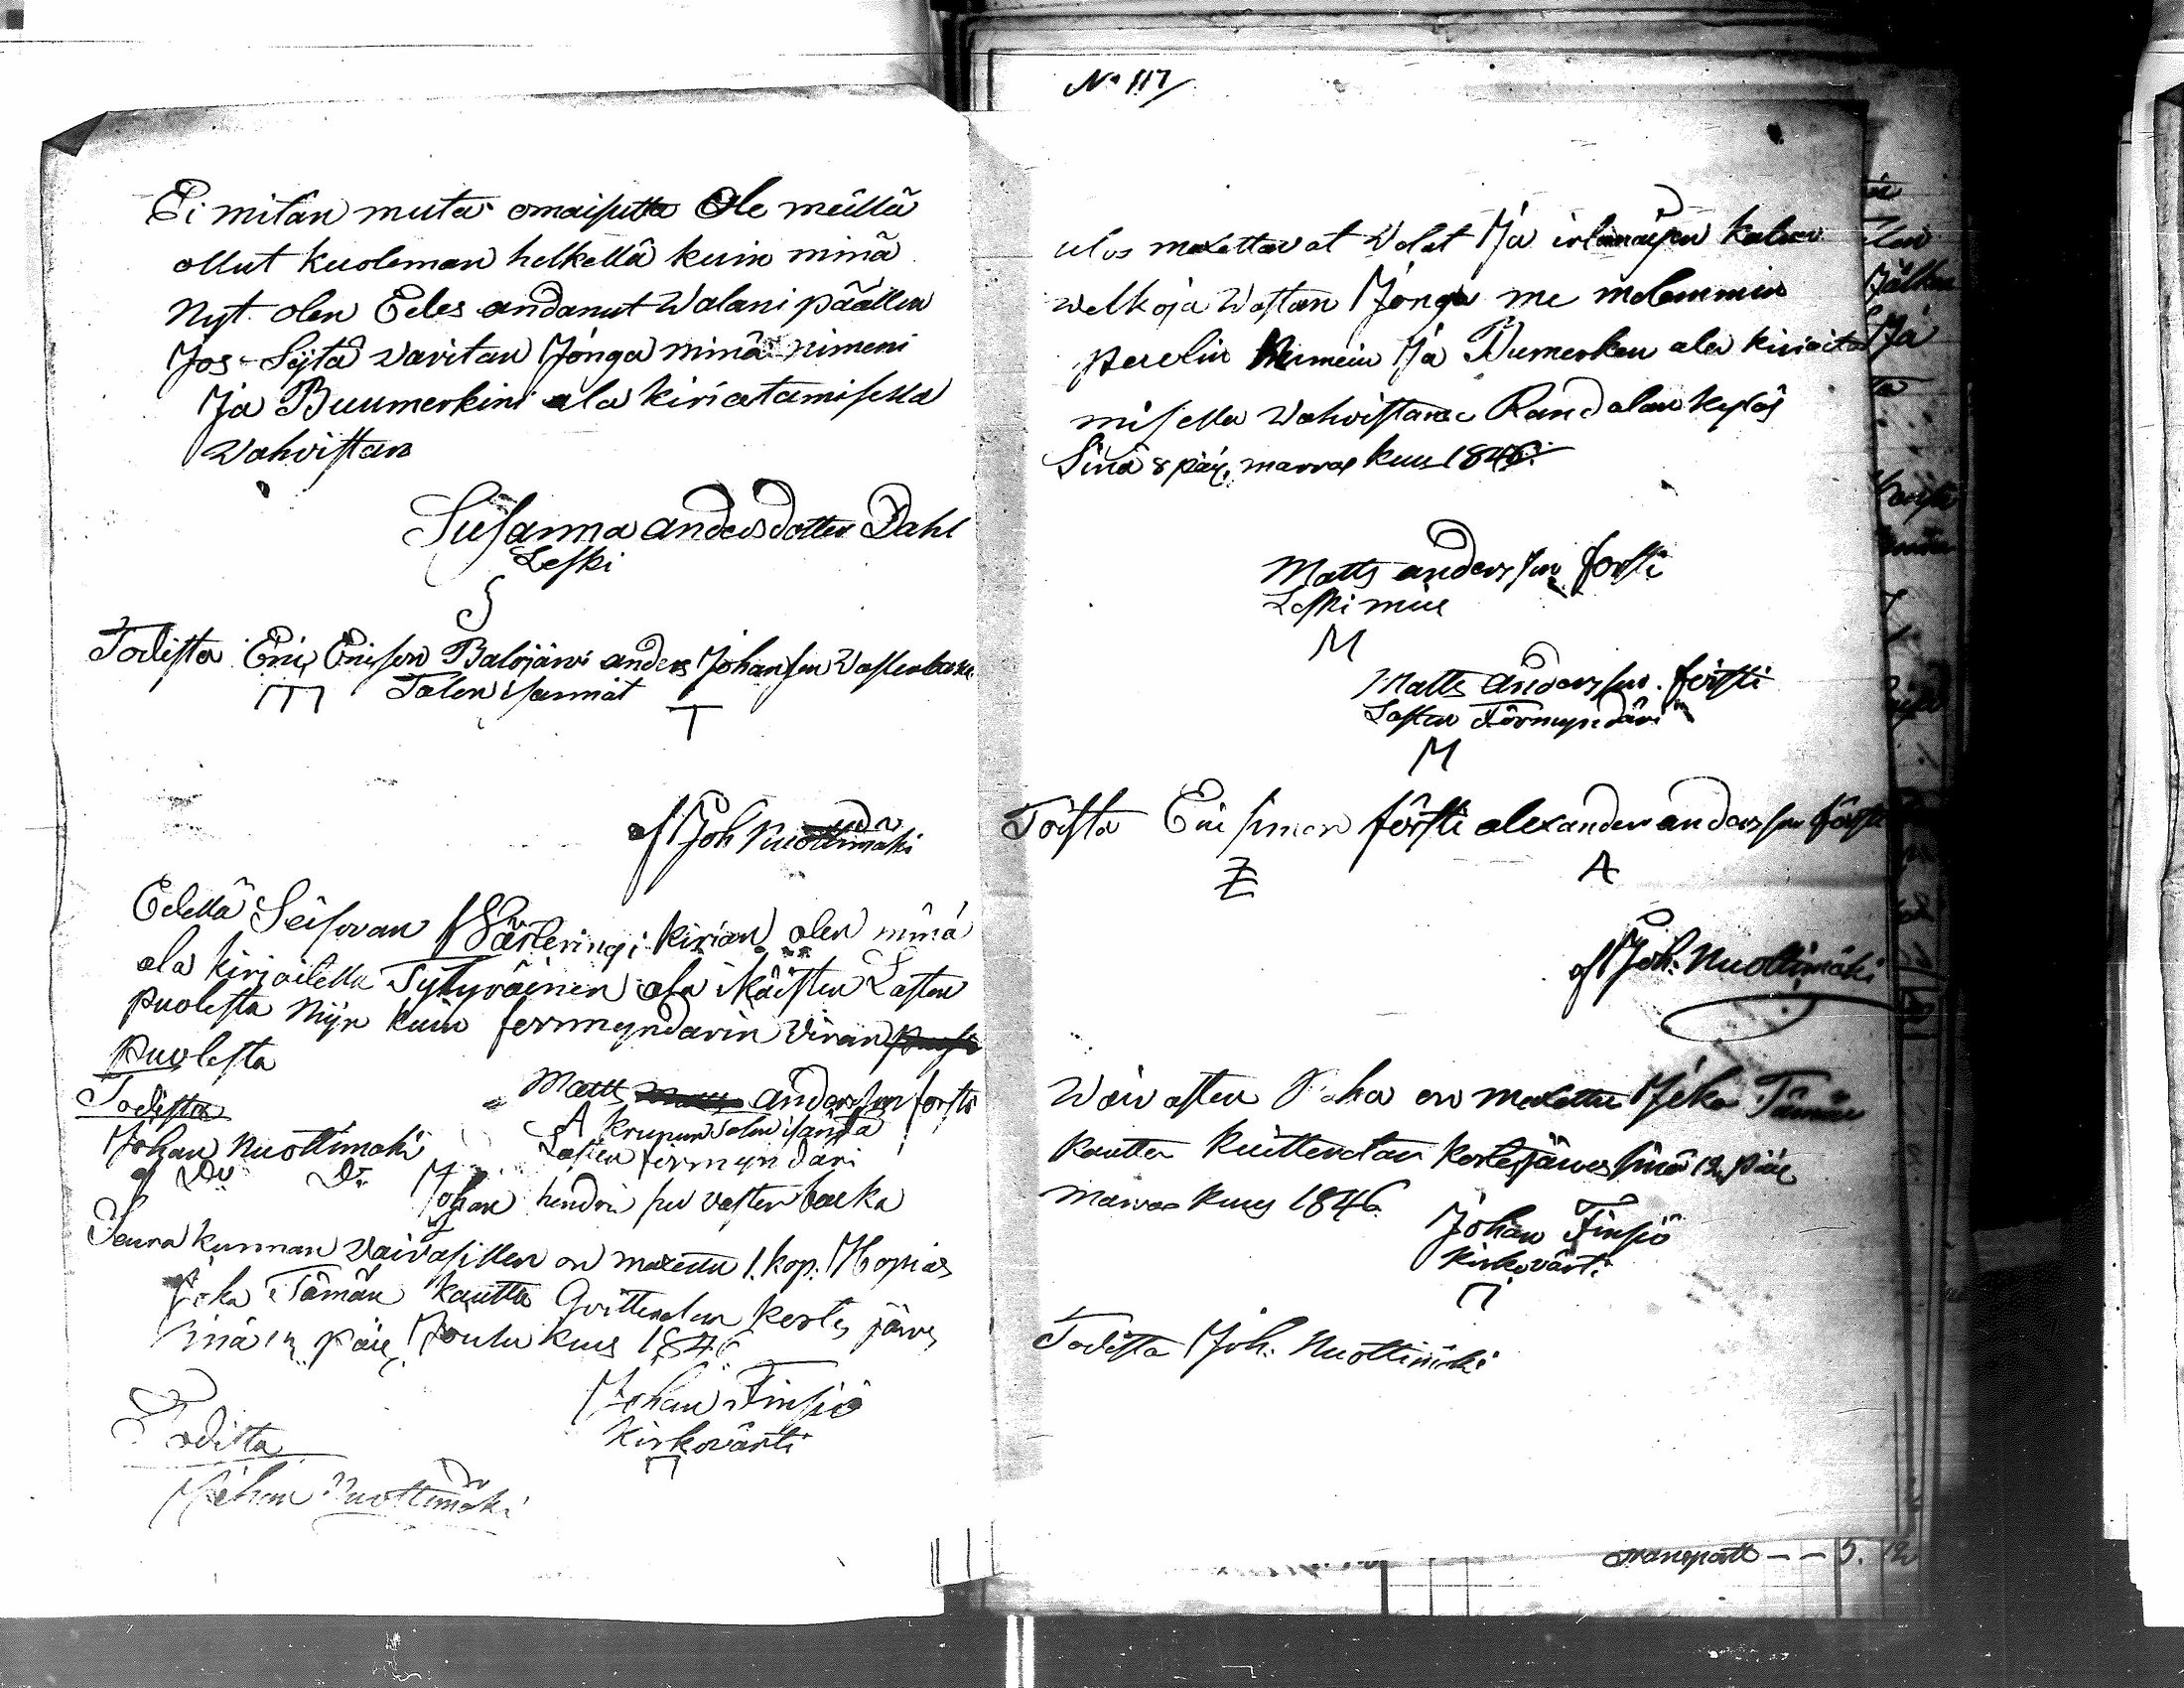 Ei mitän muta omaisutta Ole meillä
ollut kuoleman hetkellä kuin minä
Nyt olen Edes andanut Walani päällen
Jos Sýtä varitan Jonga minä nimeni
Ja Buumerkini ala kiriatamisella
Wahvistan
Susanna andersdotter Dahl
Leski
S
Todista Eric Ericson Balojärvi anders Johansson Vasterbacka
Talon isannät
af Joh Nuottimäki
Edellä Seisovan Värteringi kirian olen minä
ala kirjoitella Tytyväinen ala ikäisten Lasten
puolesta Nijn kuin formyndarin viran
puolesta
Todista
Matts andersson forsti
A Talon isäntä
Johan Nuottimäki
Lasten formyndari
af Do Do
Johan hendri son vasterbacka
Seurakunnan Vaivasillen on maxettu 1. kop. Hopias
Joka Tämän kautta Qvitterdan kortesjärves
sinä päiv Joulu kuus 1846
Johan Finsiö
Kirkovärti
Todista
Johan Nuottimäki
No 117
ulos maxettavat Velat Ja irtanaisen kalun
welkoja Vastan Jonga me molemmin
puolin Nimein Ja Bumerkin ala kirioita
misella Vahvistama Randalan kyläs
Sinä 8 päiv. marras kuus 1846.
Matts andersson forsti
Leski mies
M
Matts andersson försti
Lasten Förmyndäri
M
Toista Eric simon försti alexander andersson försti
A
af Joh. Nuottimäki
Waivasten Raha on maxettu Joka Tämän
kautta kuitterdan kortesjärves sinä 12 päiv
marras kuus 1846.
Johan Finsiö
kirkovärti
Todista Joh. Nuottimäki
transport -- 5. 12